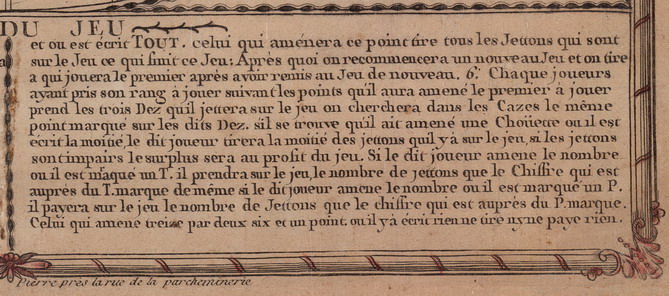 DU JEU
et ou est écrit TOUT. celui qui aménera ce point tire tous les Jettons qui sont
sur le Jeu ce qui finit ce Jeu: Après quoi on recommencera un nouveau Jeu et on tire
a qui jouera le premier aprés avoir remis au Jeu de nouveau. 6.º Chaque joueurs
ayant pris son rang à jouer suivant les points qu'il aura amené le premier à jouer
prend les trois Dez qu'il jettera sur le jeu on cherchera dans les Cazes le même
point marqué sur les dits Dez. s'il se trouve qu'il ait amené une Choüette ou il est
écrit la moitié, le dit joueur tirera la moitié des jettons qu'il y à sur le jeu, si les jettons
sont impairs le surplus sera au profit du jeu. Si le dit joueur amene le nombre
ou il est maqué un T. il prendra sur le jeu, le nombre de jettons que le Chiffre qui est
auprès du T. marque de même si le dit joueur amene le nombre ou il est marqué un P.
il payera sur le jeu le nombre de Jettons que le chiffre qui est auprès du P. marque.
Celui qui amene treize par deux six et un point ou il y à écrit rien ne tire ny ne paye rien.
Pierre près la rue de la parcheminerie